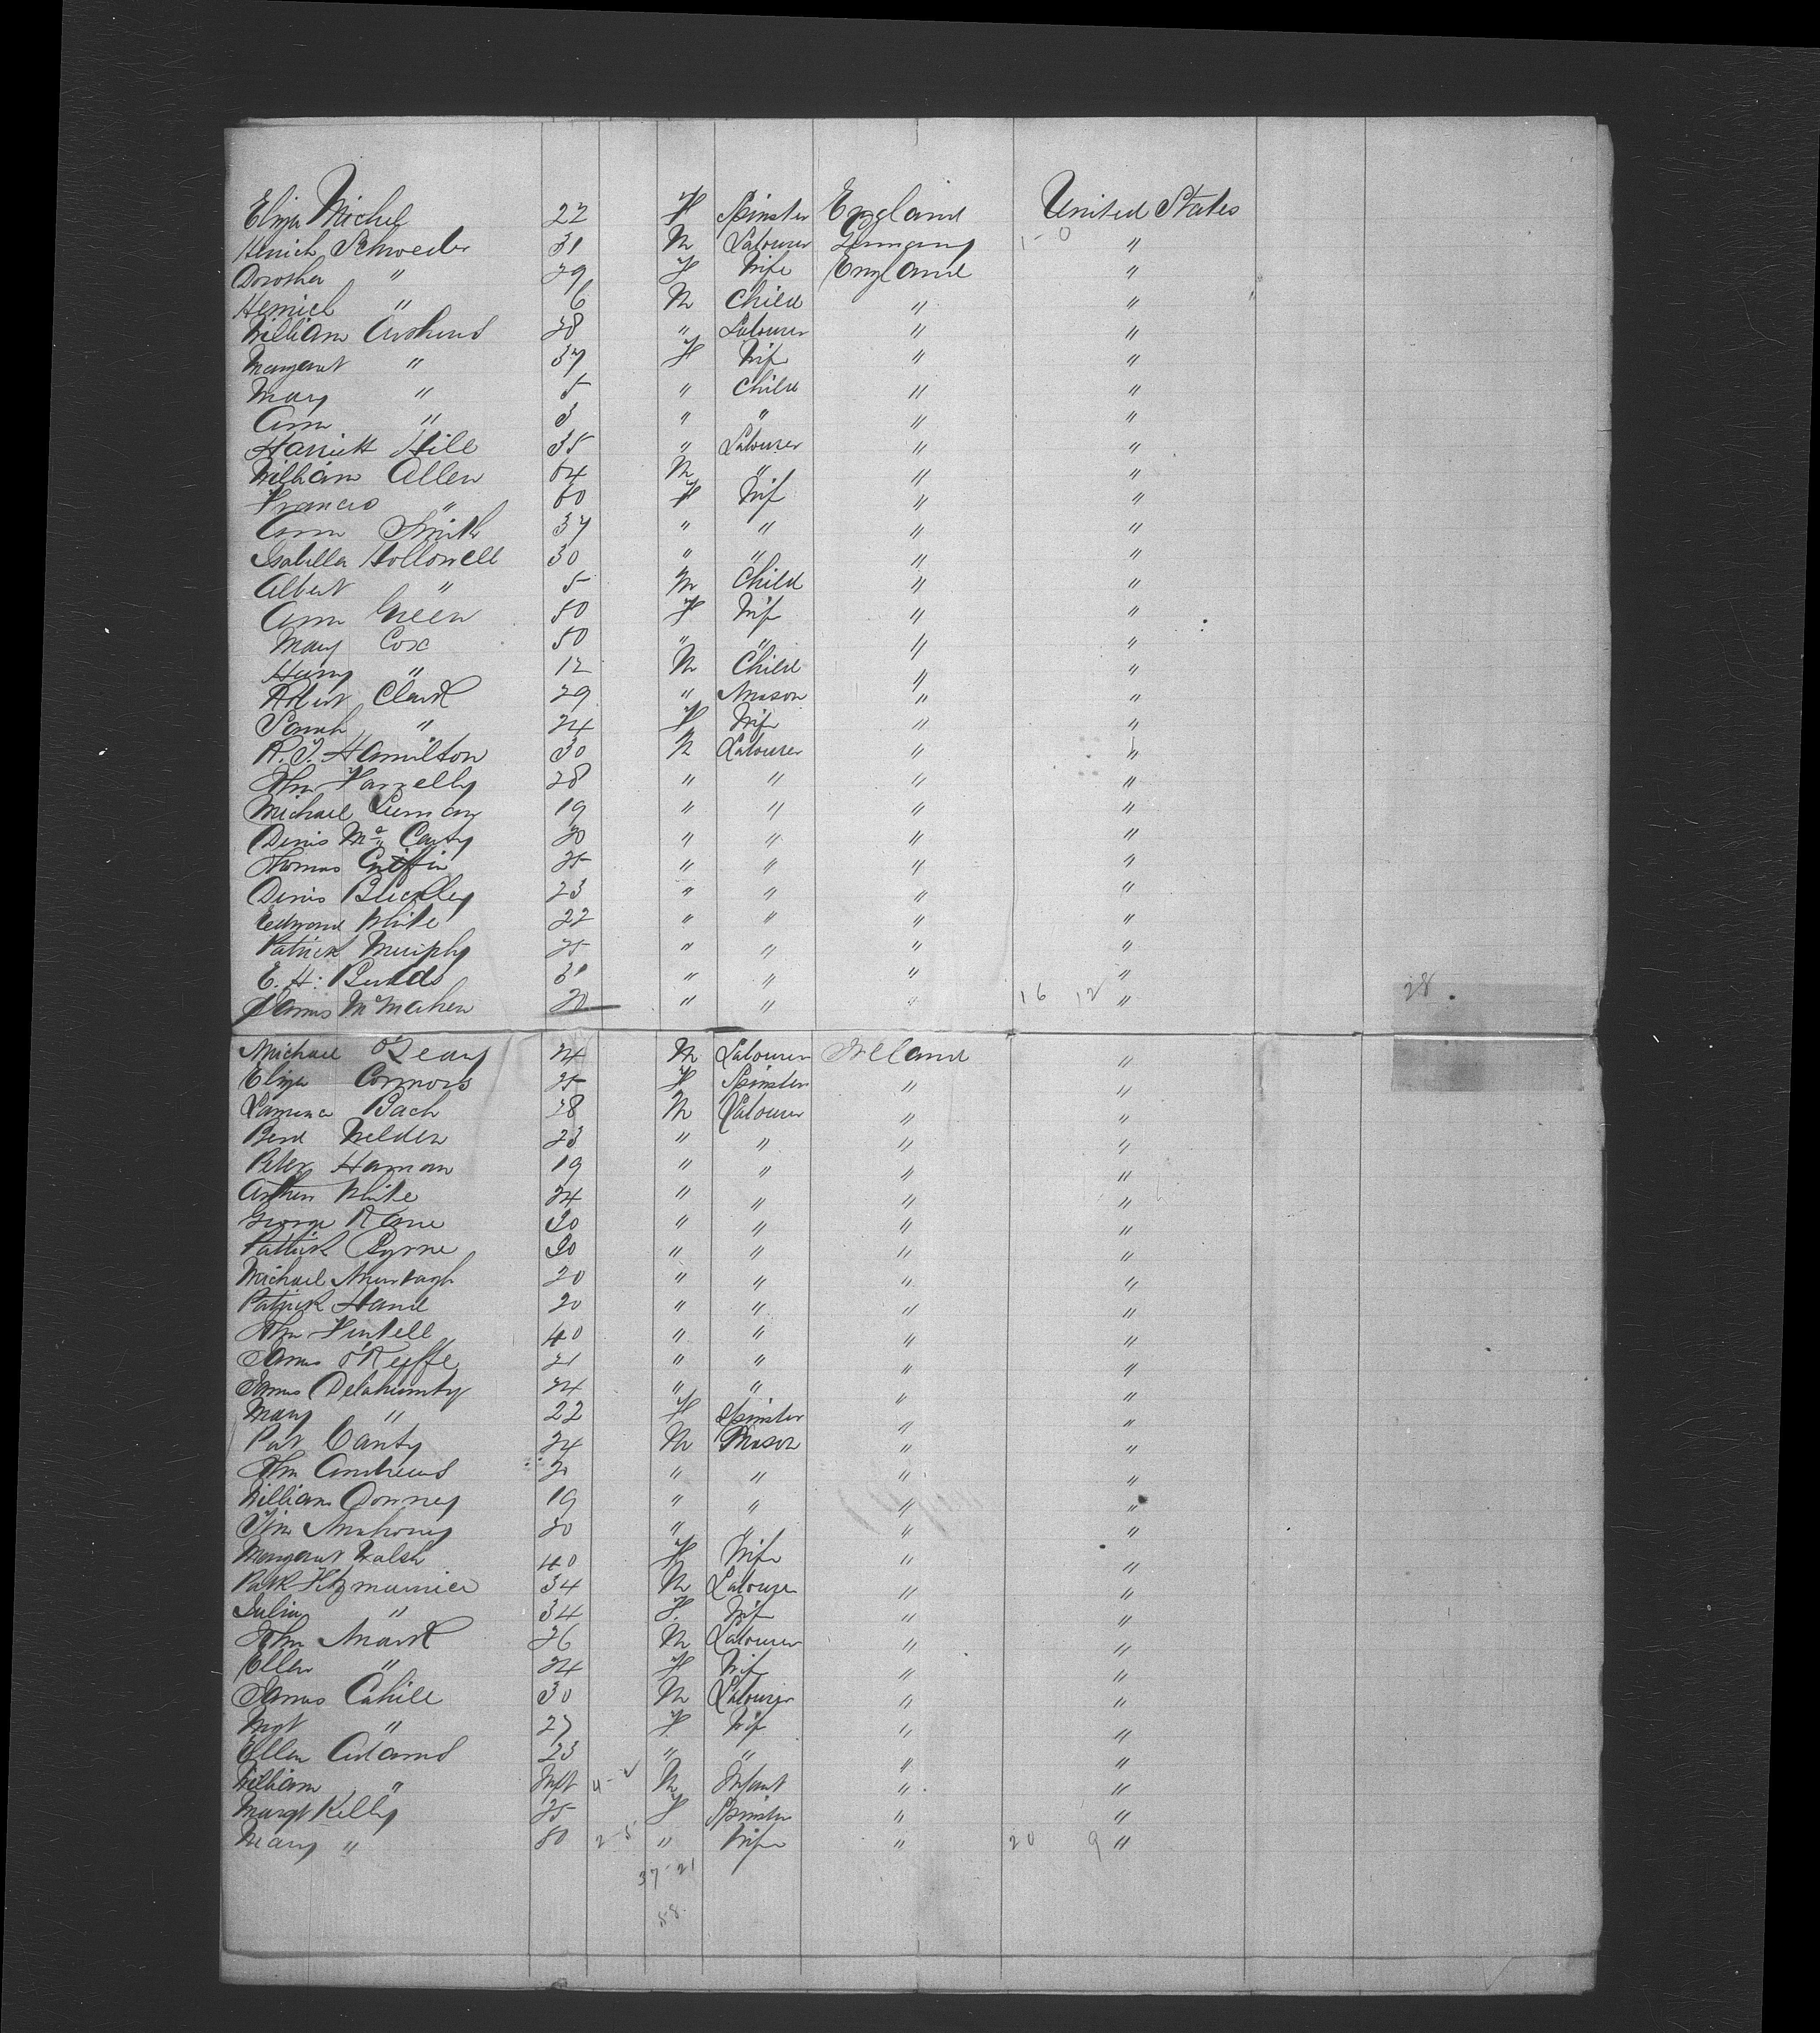 Eliza Michel 22 F Spinster England United States
Henich Schroeder 31 M Labourer Germany 1-0 "
Dorothea " 29 F Wife England "
Henrich " 6 M Child " "
William 28 " Labourer " "
Margaret " 37 F Wife " "
Mary " 5 " Child " "
Ann " 3 " " " "
Harriett Hill 35 " Labourer " "
William Allen 64 M " " "
Frances " 60 F Wif " "
Ann Smith 37 " " " "
Isabella Hollowell 30 " " " "
Albert " 5 M Child " "
Ann Green 50 F Wif " "
Mary Cox 50 " " " "
Harry " 12 M Child " "
Robert Clark 29 " Mason " "
Sarah " 24 F Wife " "
R. J. Hamilton 30 M Labourer " "
John Farrelly 28 " " " "
Michael 19 " " " "
Denis Mc Carty 20 " " " "
Thomas Griffin 25 " " " "
Denis Buckley 23 " " " "
Edmond White 22 " " " "
Patrick Murphy 25 " " " "
E. H. Budds 31 " " " "
James McMahon 20 " " " 16 12 " 28
Michael O'Leary 24 M Labourer Ireland "
Eliza Connors 25 F Spinster " "
Lawrence Bach 28 M Labourer " "
Welden 23 " " " "
Peter Harman 19 " " " "
Arthur White 24 " " " "
George Kane 20 " " " "
Patrick Byrne 20 " " " "
Michael Murtagh 20 " " " "
Patrick Hand 20 " " " "
John 40 " " " "
James O'Keeffe 21 " " " "
James Delahunty 24 " " " "
Mary " 22 F Spinster " "
Pat Canty 24 M Mason " "
John Andrews 20 " " " "
William 19 " " " "
Tim Mahony 20 " " " "
Margaret Walsh 40 F Wife " "
Patk Fitzmaurice 34 M Labourer " "
Julia " 34 F. Wif " "
John Mark 26 M Labourer " "
Ellen " 24 F Wif " "
James Cahill 30 M Labourer " "
Mgt " 27 F. Wif " "
Ellen Adams 23 " " " "
William " Inft M Infant " "
Margt Kelly 25 F Spinster " "
Mary " 50 2-5 " Wife " 20 9 "
37-21
58